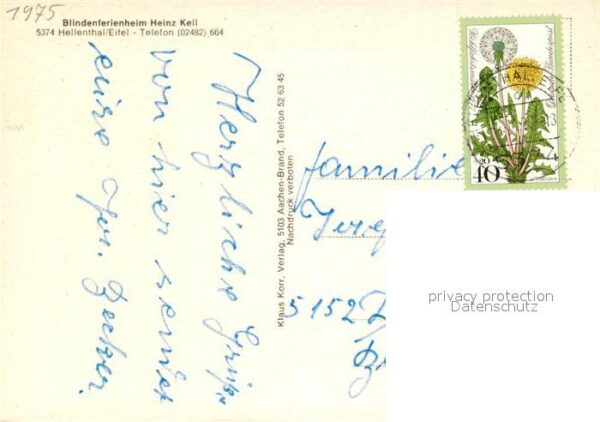 1975
Blindenferienheim Heinz Keil
5374 Hellenthal/Eifel - Telefon (02482) 664
Herzliche Grüße
von hier sendet
eure
Klaus Korr, Verlag, 5103 Aachen-Brand, Telefon 52 63 45
Nachdruck verboten
Deutsche Bundespost
+20
40
Familie
5152
privacy protection
Datenschutz